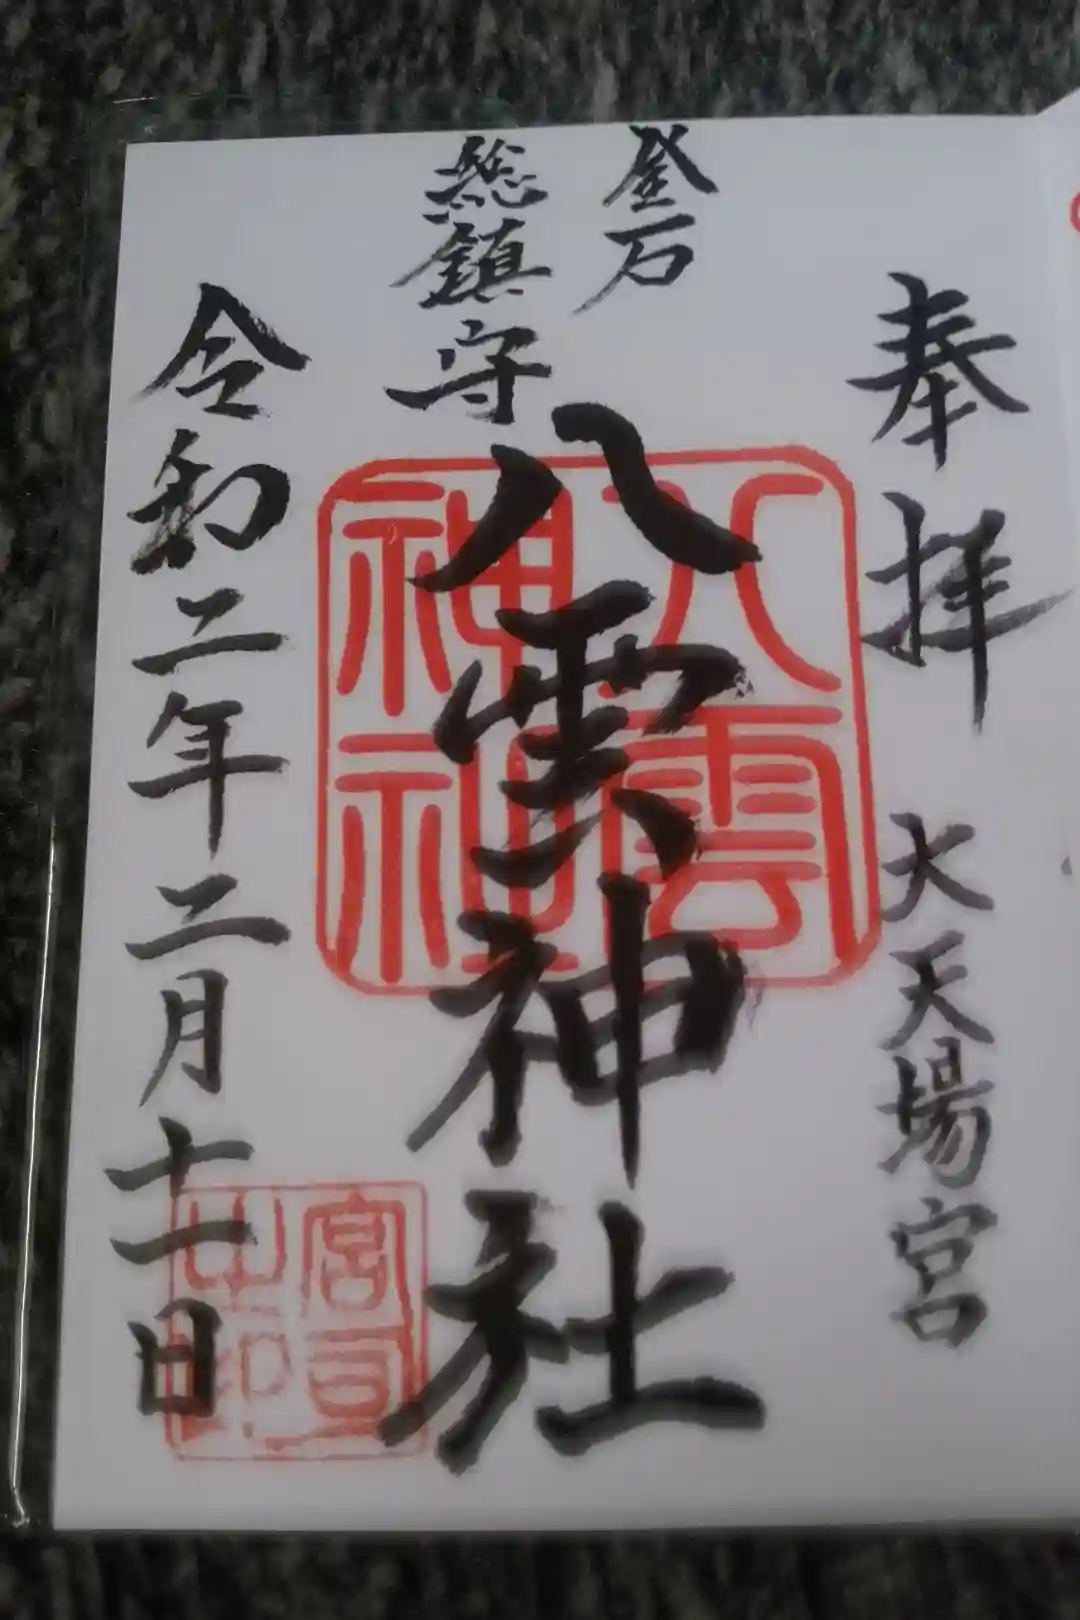 奉拝
大天場宮
釜石
総鎮守
八雲神社
令和二年二月十一日
八雲
神社
宮司
之印